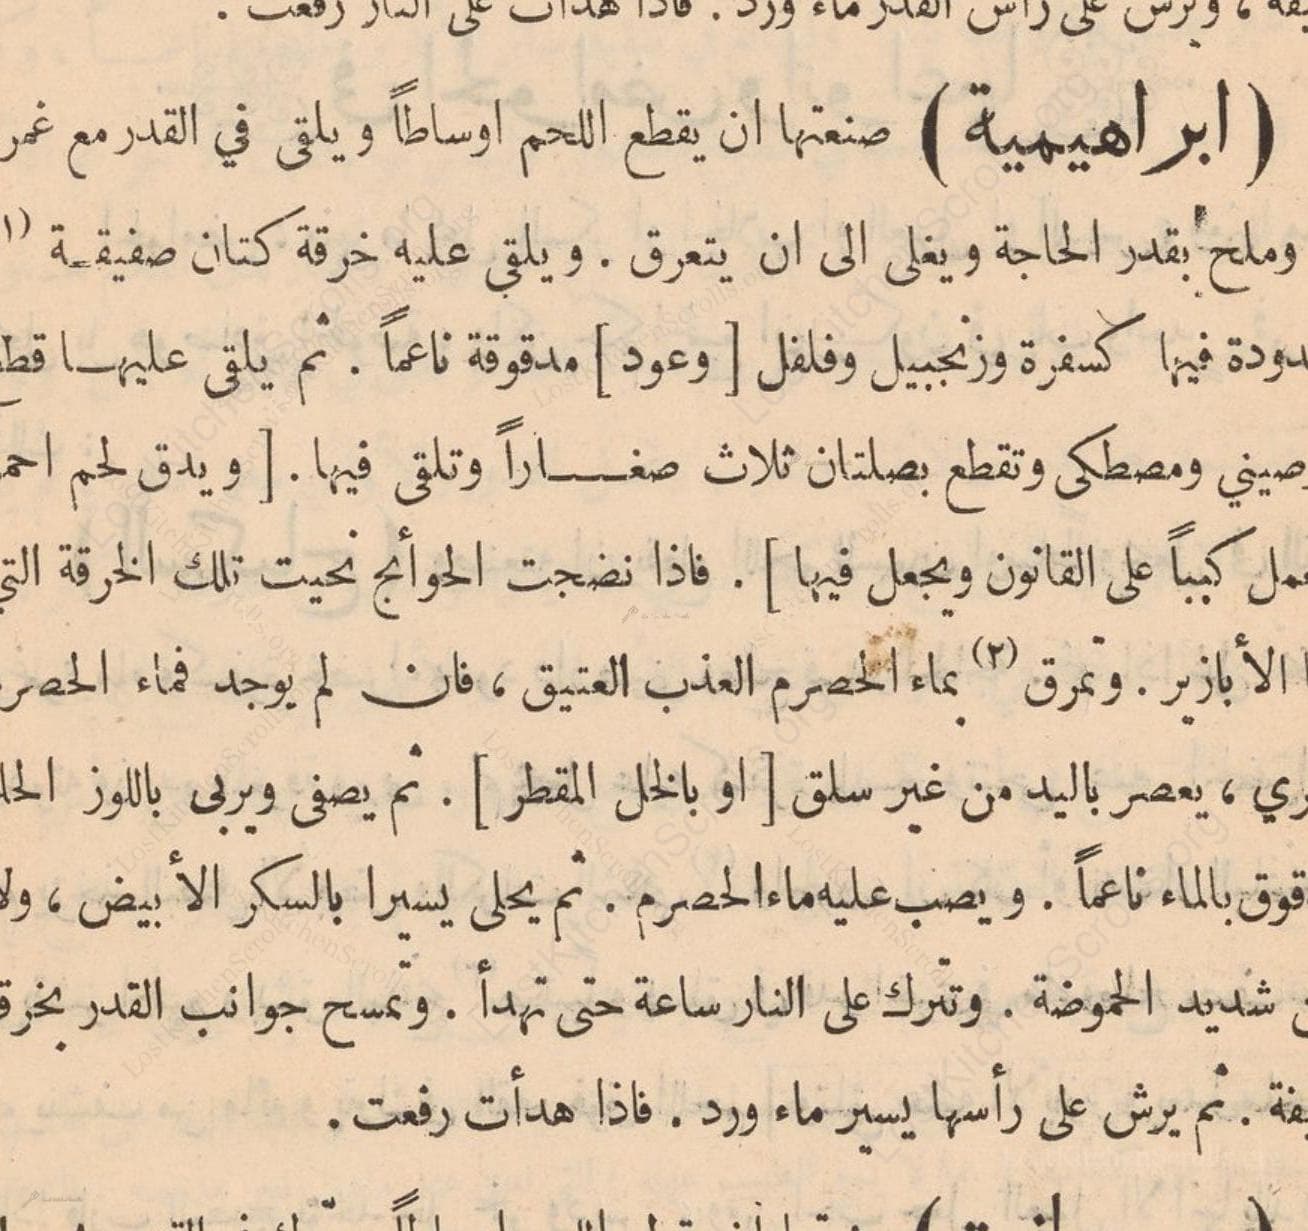 ، ويرش على رأس القدر ماء ورد . فاذا هدأت على النار رفعت .
( ابراهيمية ) صنعتها ان يقطع اللحم اوساطاً ويلقى في القدر مع غمر
وملح بقدر الحاجة ويغلى الى ان يتعرق . ويلقى عليه خرقة كتان صفيقة (١
دودة فيها كسفرة وزنجبيل وفلفل [ وعود ] مدقوقة ناعماً . ثم يلقى عليها قطع
صيني ومصطكى وتقطع بصلتان ثلاث صغاراً وتلقى فيها . [ ويدق لحم احمر
عمل كبباً على القانون ويجعل فيها ] . فاذا نضجت الحوائج نحيت تلك الخرقة التي
ا الأبازير . وتمرق (٢) بماء الحصرم العذب العتيق ، فان لم يوجد فماء الحصر
ري ، يعصر باليد من غير سلق [ او بالخل المقطر ] . ثم يصفى ويربى باللوز الحل
قوق بالماء ناعماً . ويصب عليه ماء الحصرم . ثم يحلى يسيرا بالسكر الأبيض ، ولا
شديد الحموضة . وتترك على النار ساعة حتى تهدأ . وتمسح جوانب القدر بخرقة
يفة . ثم يرش على رأسها يسير ماء ورد . فاذا هدأت رفعت .